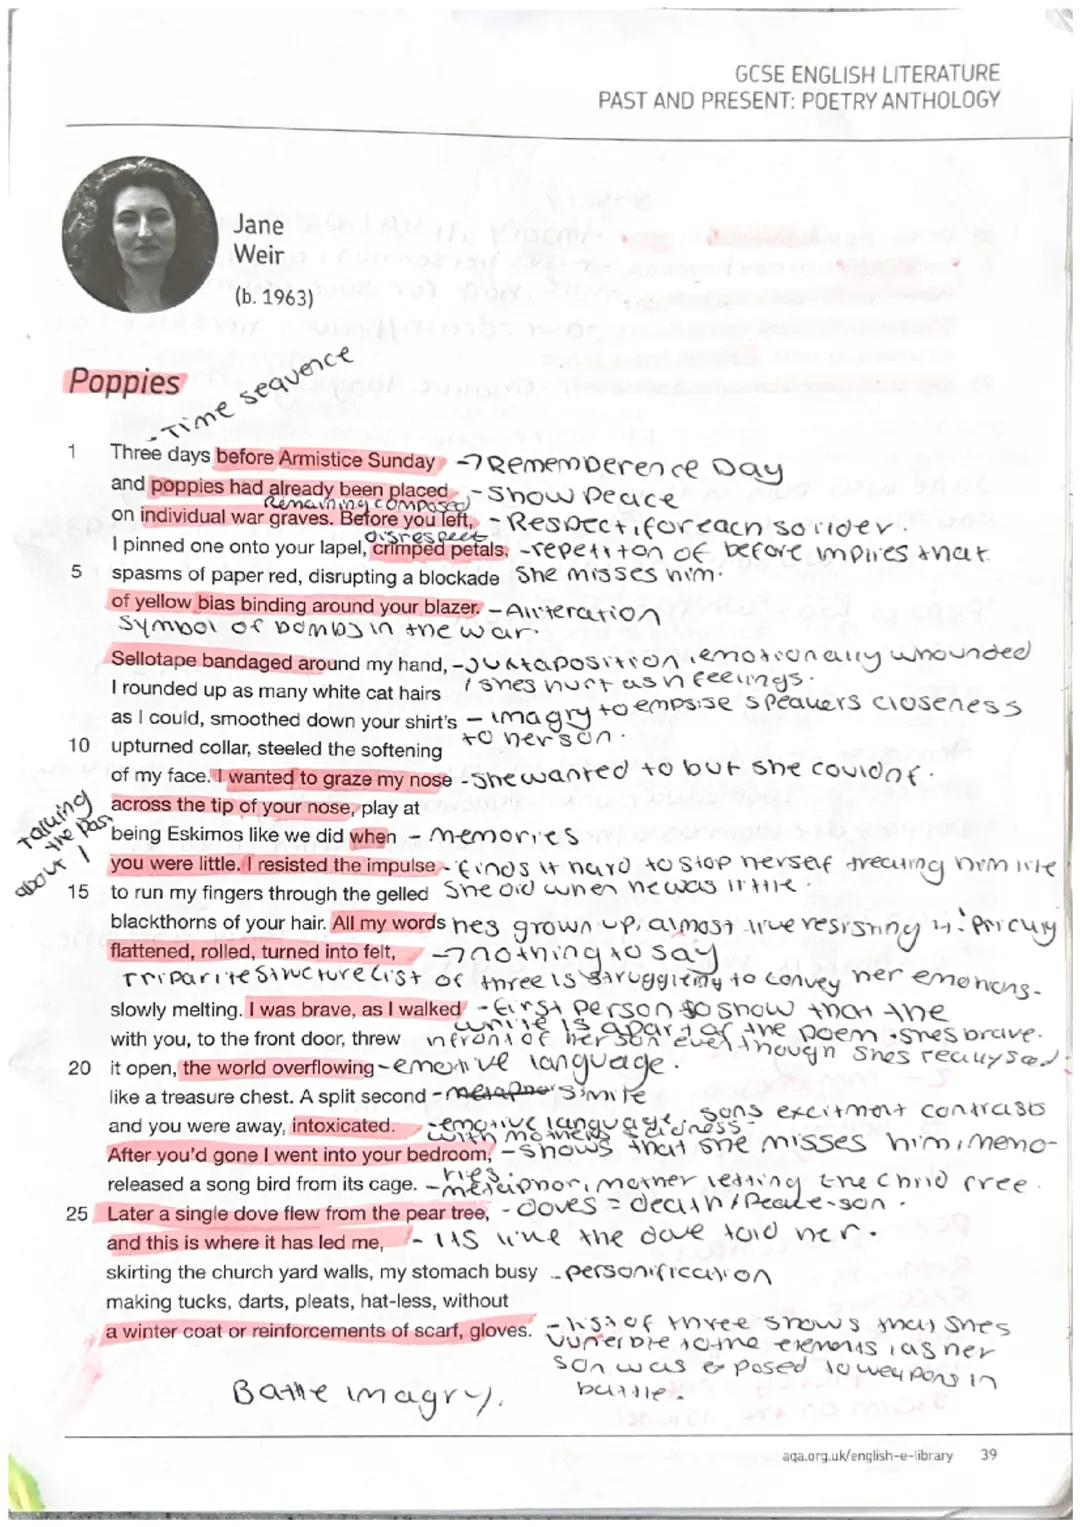 GCSE ENGLISH LITERATURE
PAST AND PRESENT: POETRY ANTHOLOGY
Jane
Weir
(b. 1963)
Poppies
- Time sequence
1 Three days before Armistice Sunday -> Rememberence Day
and poppies had already been placed - Show peace
Remaining composed
on individual war graves. Before you left, - Respect, for each soilder.
disrespect
I pinned one onto your lapel, crimped petals, - repetiton of before implies that
5 spasms of paper red, disrupting a blockade she misses him.
of yellow bias binding around your blazer. - Aliteration
Symbol of bombs in the war.
Sellotape bandaged around my hand, - Juxtaposition, emotionally whounded
I rounded up as many white cat hairs / shes hurt as n feelings.
as I could, smoothed down your shirt's - imagry to empsise speakers closeness
10 upturned collar, steeled the softening to her son.
of my face. I wanted to graze my nose - She wanted to but she couldnt.
across the tip of your nose, play at
talking about the Past
being Eskimos like we did when - memories
you were little. I resisted the impulse - finds it hard to stop herself treating him like
15 to run my fingers through the gelled She did when he was little.
blackthorns of your hair. All my words hes grown up, almost like resisting it. Pricky
flattened, rolled, turned into felt, -> nothing to say
Triparite Structure List of three is struggling to convey her emotions.
slowly melting. I was brave, as I walked - first person to show that the
with you, to the front door, threw write is apart of the poem. shes brave.
infront of her son even though shes really sad.
20 it open, the world overflowing - emotive language.
like a treasure chest. A split second - Simile
and you were away, intoxicated. - emotive language, sons excitment contrasts
with mothers sadness
After you'd gone I went into your bedroom, - shows that she misses him, memo-
released a song bird from its cage. ries.
- metaphor, mother letting the child free.
25 Later a single dove flew from the pear tree, - doves = death / peace - son.
and this is where it has led me, - its like the dove told her.
skirting the church yard walls, my stomach busy - personification
making tucks, darts, pleats, hat-less, without
a winter coat or reinforcements of scarf, gloves. - list of three shows that shes
vunerble to the elements, as her
son was exposed to weapons in
battle.
Battle imagry.
aqa.org.uk/english-e-library 39